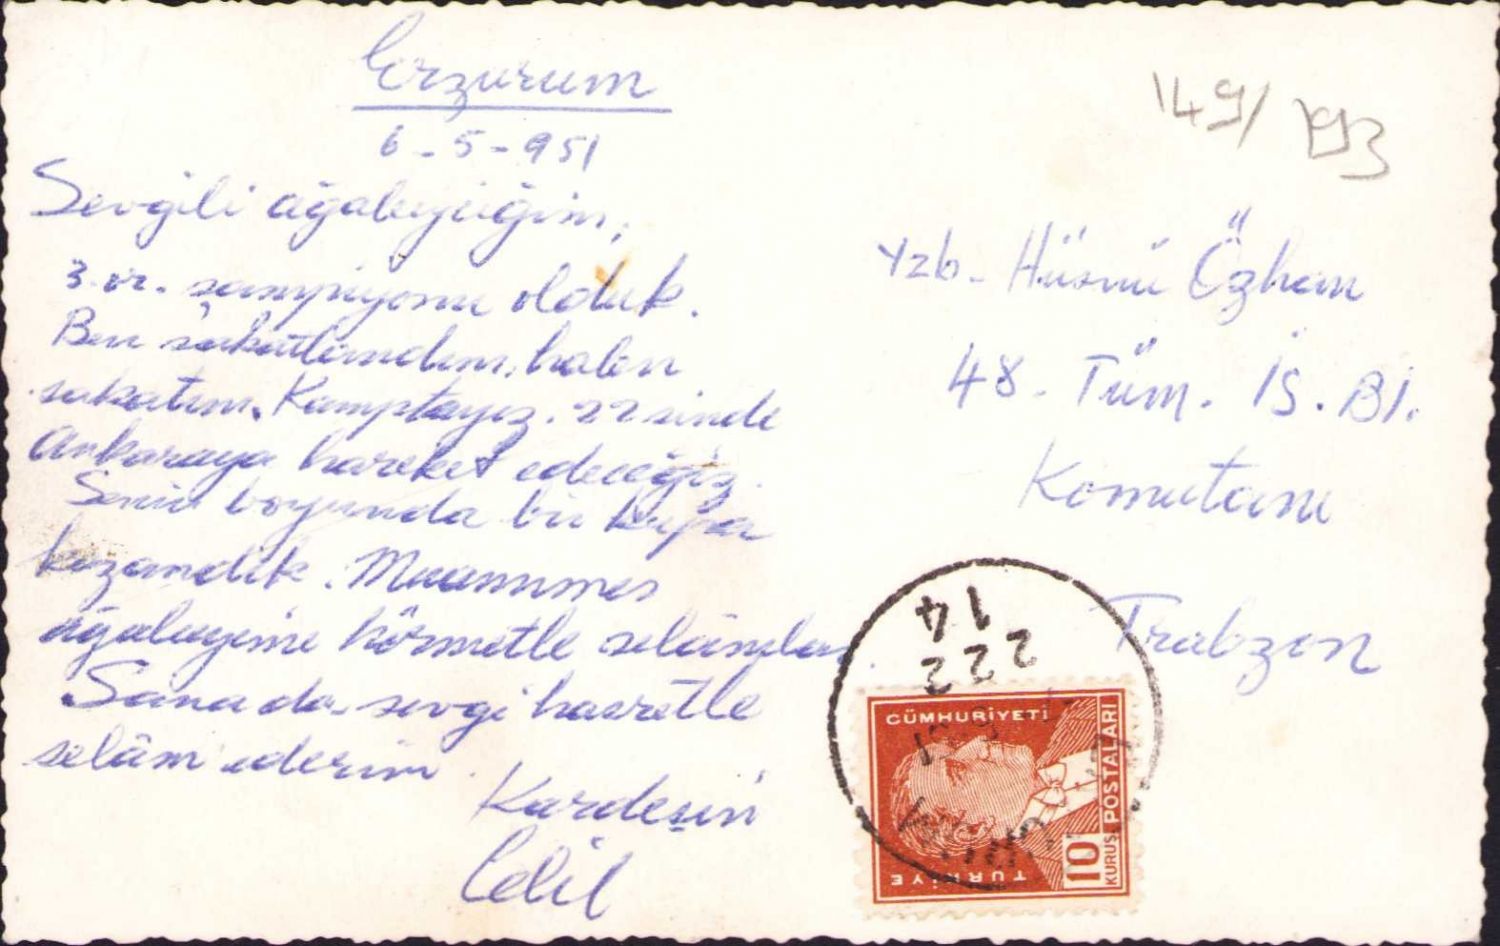 Erzurum
6-5-951
Sevgili ağabeyciğim,
3. or. şampiyonu olduk.
Ben sakatlandım, halen
sakatım. Kamptayız. 22 sinde
Ankaraya hareket edeceğiz.
Senin boyunda bir kupa
kazandık. Muammer
ağabeyime hörmetle selâmlar.
Sana da sevgi hasretle
selâm ederim.
Kardeşin
149/
Yzb. Hüsnü Özhan
48. Tüm. İS. Bl.
Komutanı
Trabzon
14
222
CÜMHURİYETİ
POSTALARI
TÜRKİYE
10
KURUŞ